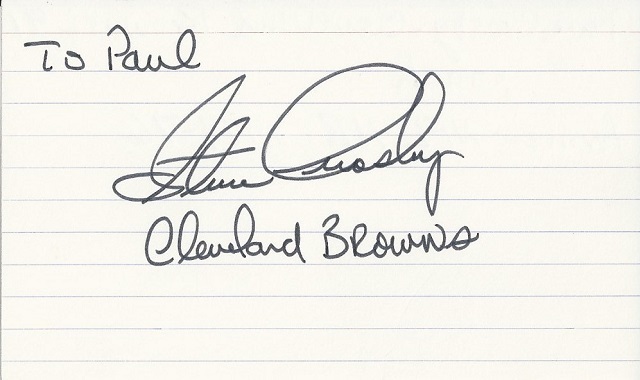 To Paul
Steve Crosby
Cleveland Browns